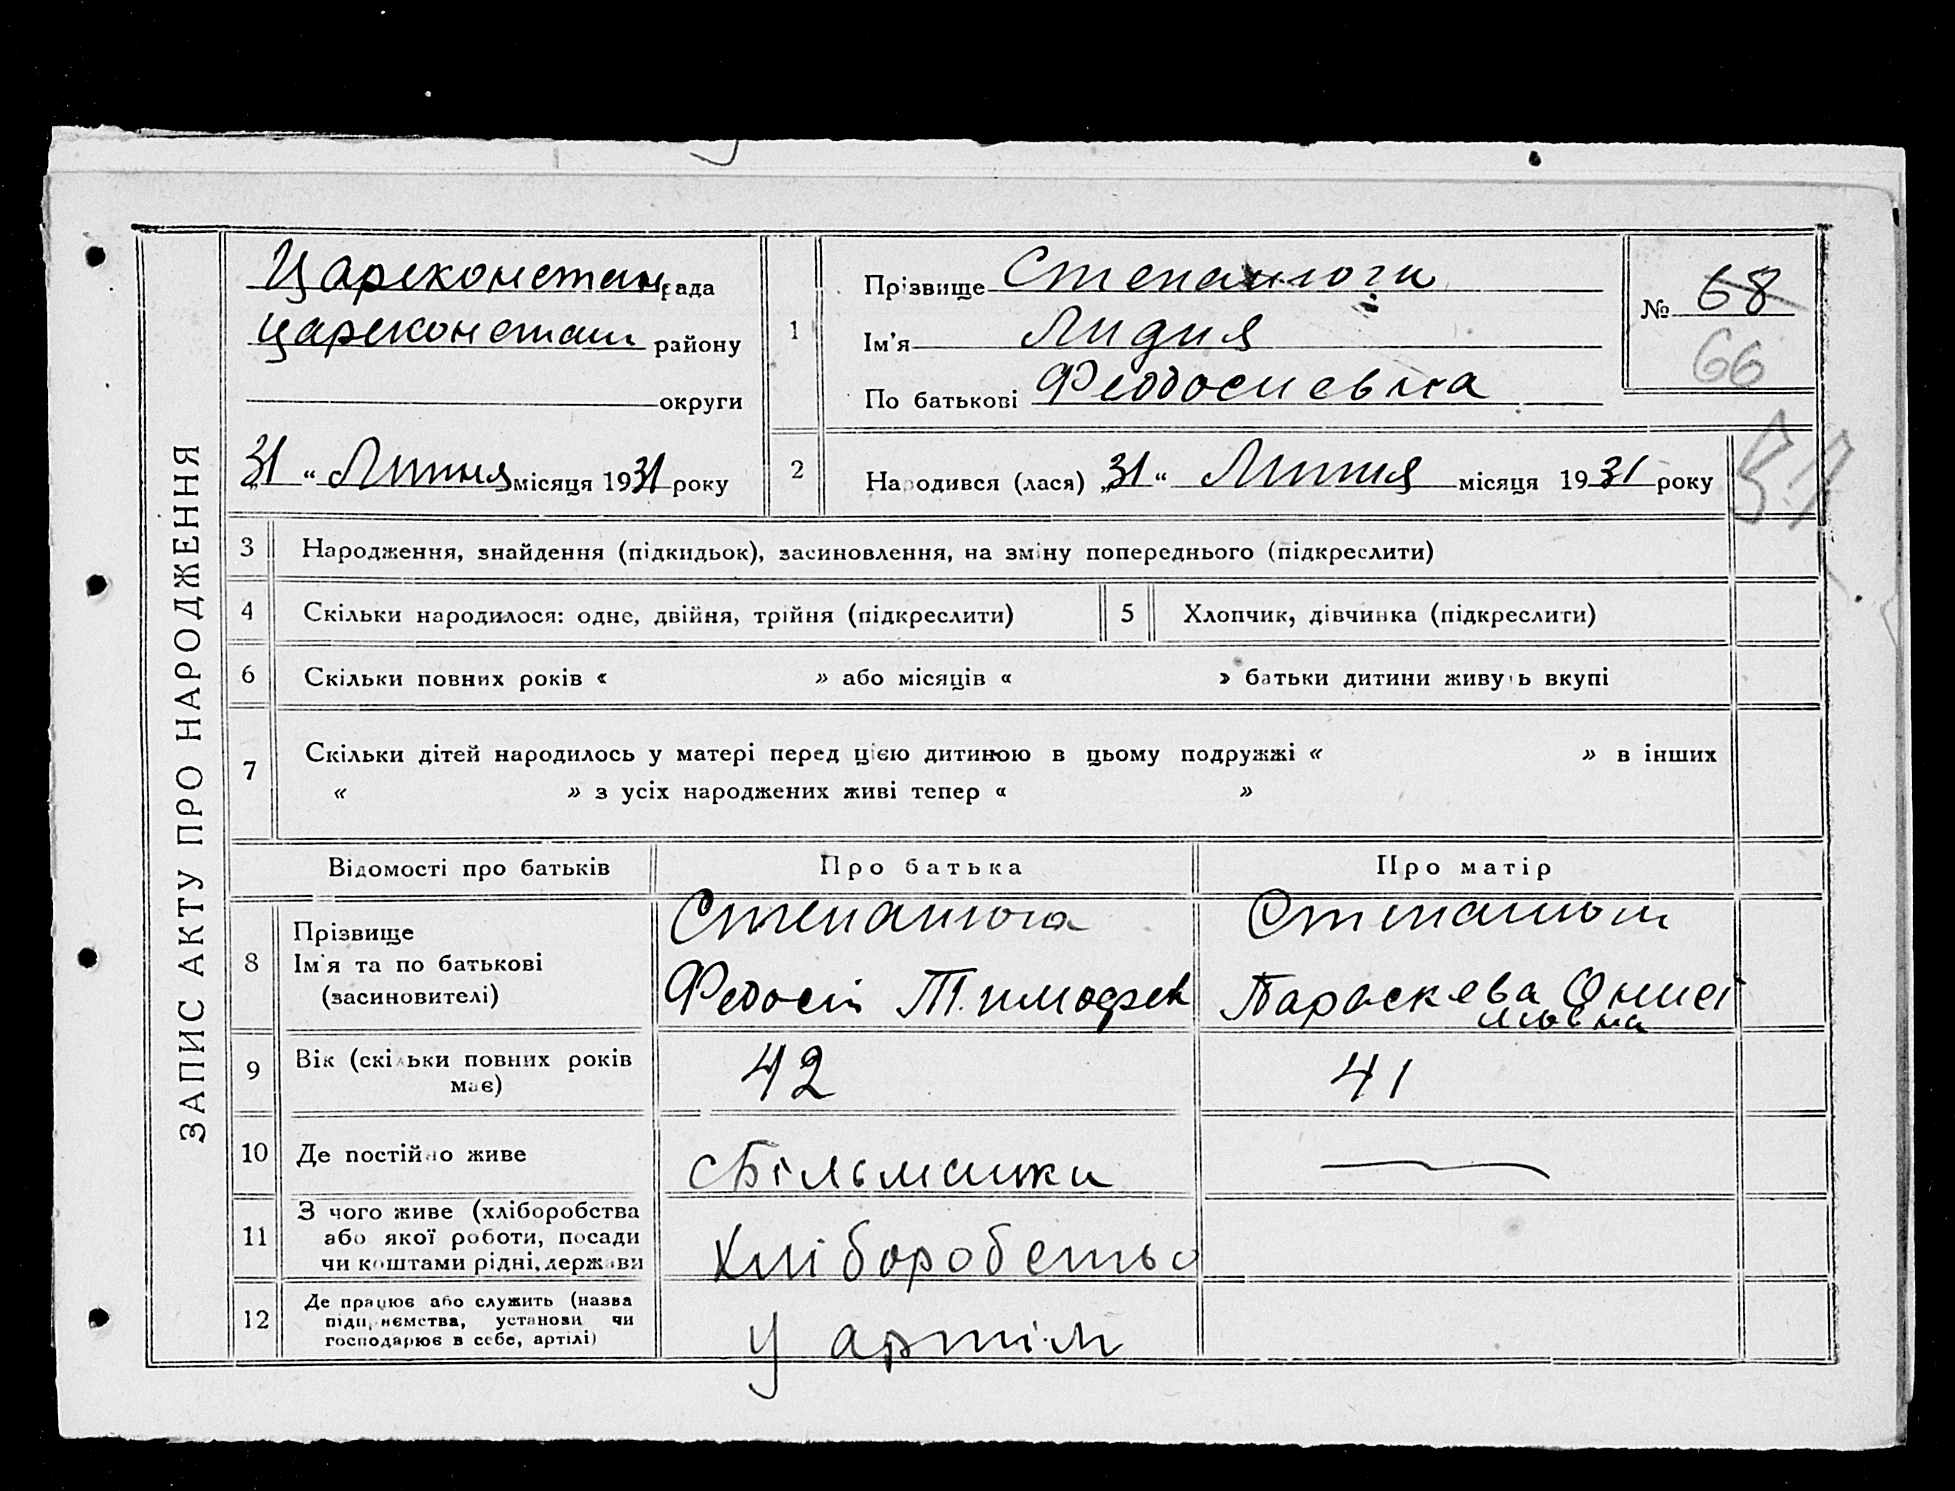 ЗАПИС АКТУ ПРО НАРОДЖЕННЯ
Цареконстан рада
Цареконстан району
округи
„31“ Липня місяця 1931 року
1
Прізвище Степанюги
Ім'я Лидия
По батькові Феодосиевна
№ 68
66
57
2
Народився (лася) „31“ Липня місяця 1931 року
3 Народження, знайдення (підкидьок), засиновлення, на зміну попереднього (підкреслити)
4 Скільки народилося: одне, двійня, трійня (підкреслити)
5 Хлопчик, дівчинка (підкреслити)
6 Скільки повних років « » або місяців « » батьки дитини живуть вкупі
7 Скільки дітей народилось у матері перед цією дитиною в цьому подружжі « » в інших
« » з усіх народжених живі тепер « »
Відомості про батьків Про батька Про матір
8 Прізвище
Ім'я та по батькові
(засиновителі)
Степанюга
Федосій Тимофев
Степанюги
Параскева Онисі
мовна
9 Вік (скільки повних років
має)
42
41
10 Де постійно живе
сБільманки
11 З чого живе (хліборобства
або якої роботи, посади
чи коштами рідні, держави
Хліборобство
12 Де працює або служить (назва
підприємства, установи чи
господарює в себе, артілі)
у артіли